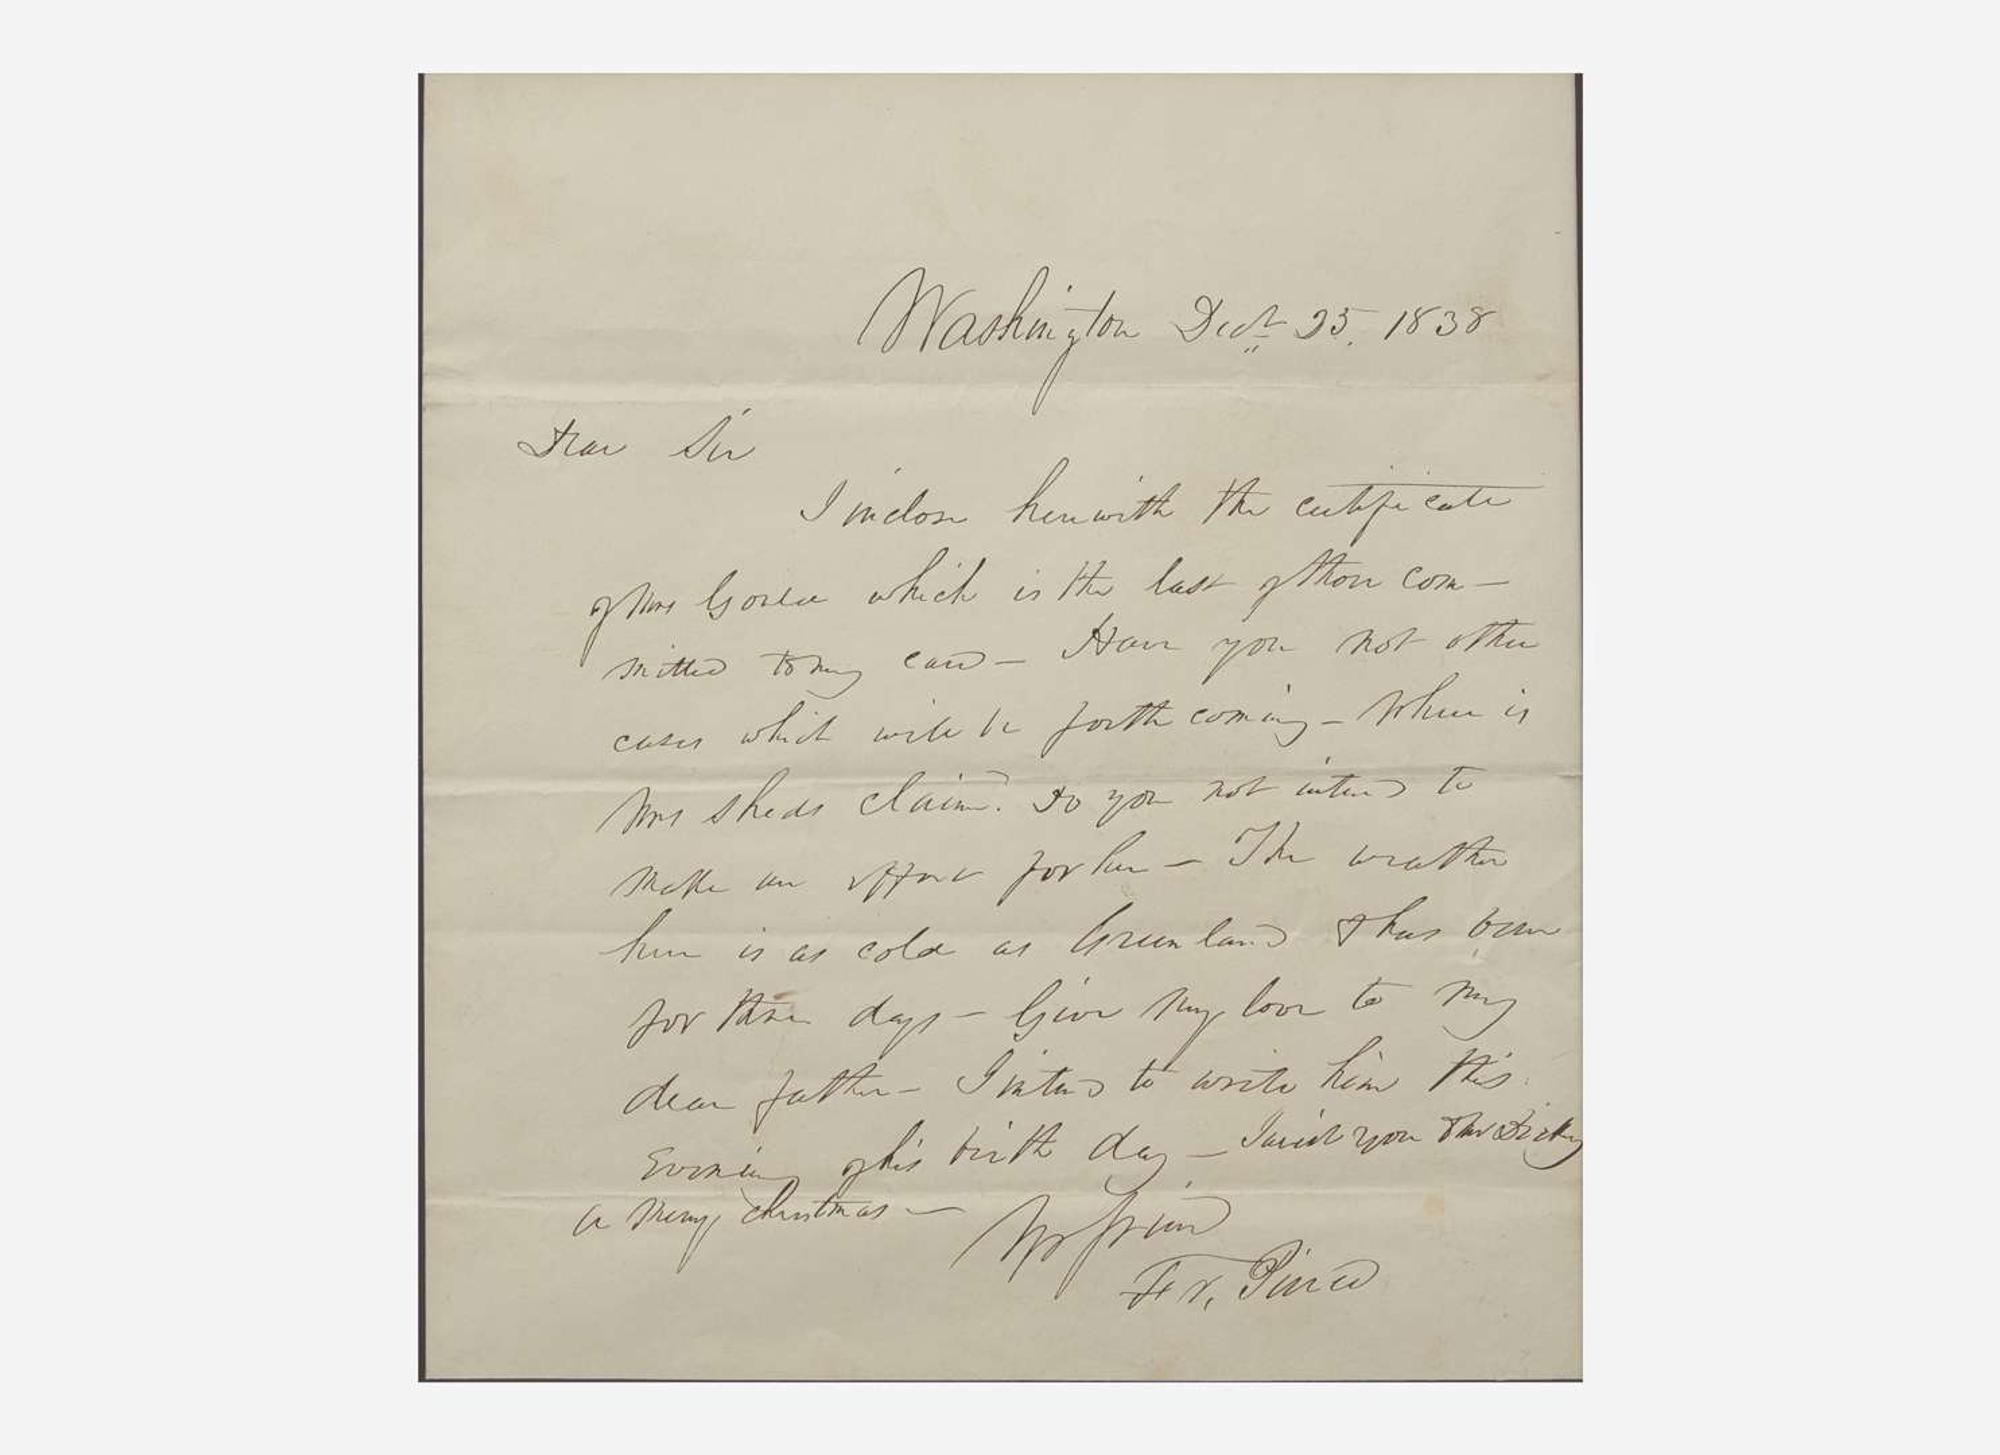 Washington Decr 25. 1838
Dear Sir
I inclose herewith the certificate
of Mrs which is the last of those com-
mitted to my care - Have you not other
cases which will be forth coming - Where is
Mrs Sheds claim? Do you not intend to
make an effort for her - The weather
here is as cold as Greenland & has been
for three days - Give my love to my
dear father - I intend to write him this
Evening of his birth day - I wish you & Mrs
a merry christmas -
Yr friend
Fr. Pierce